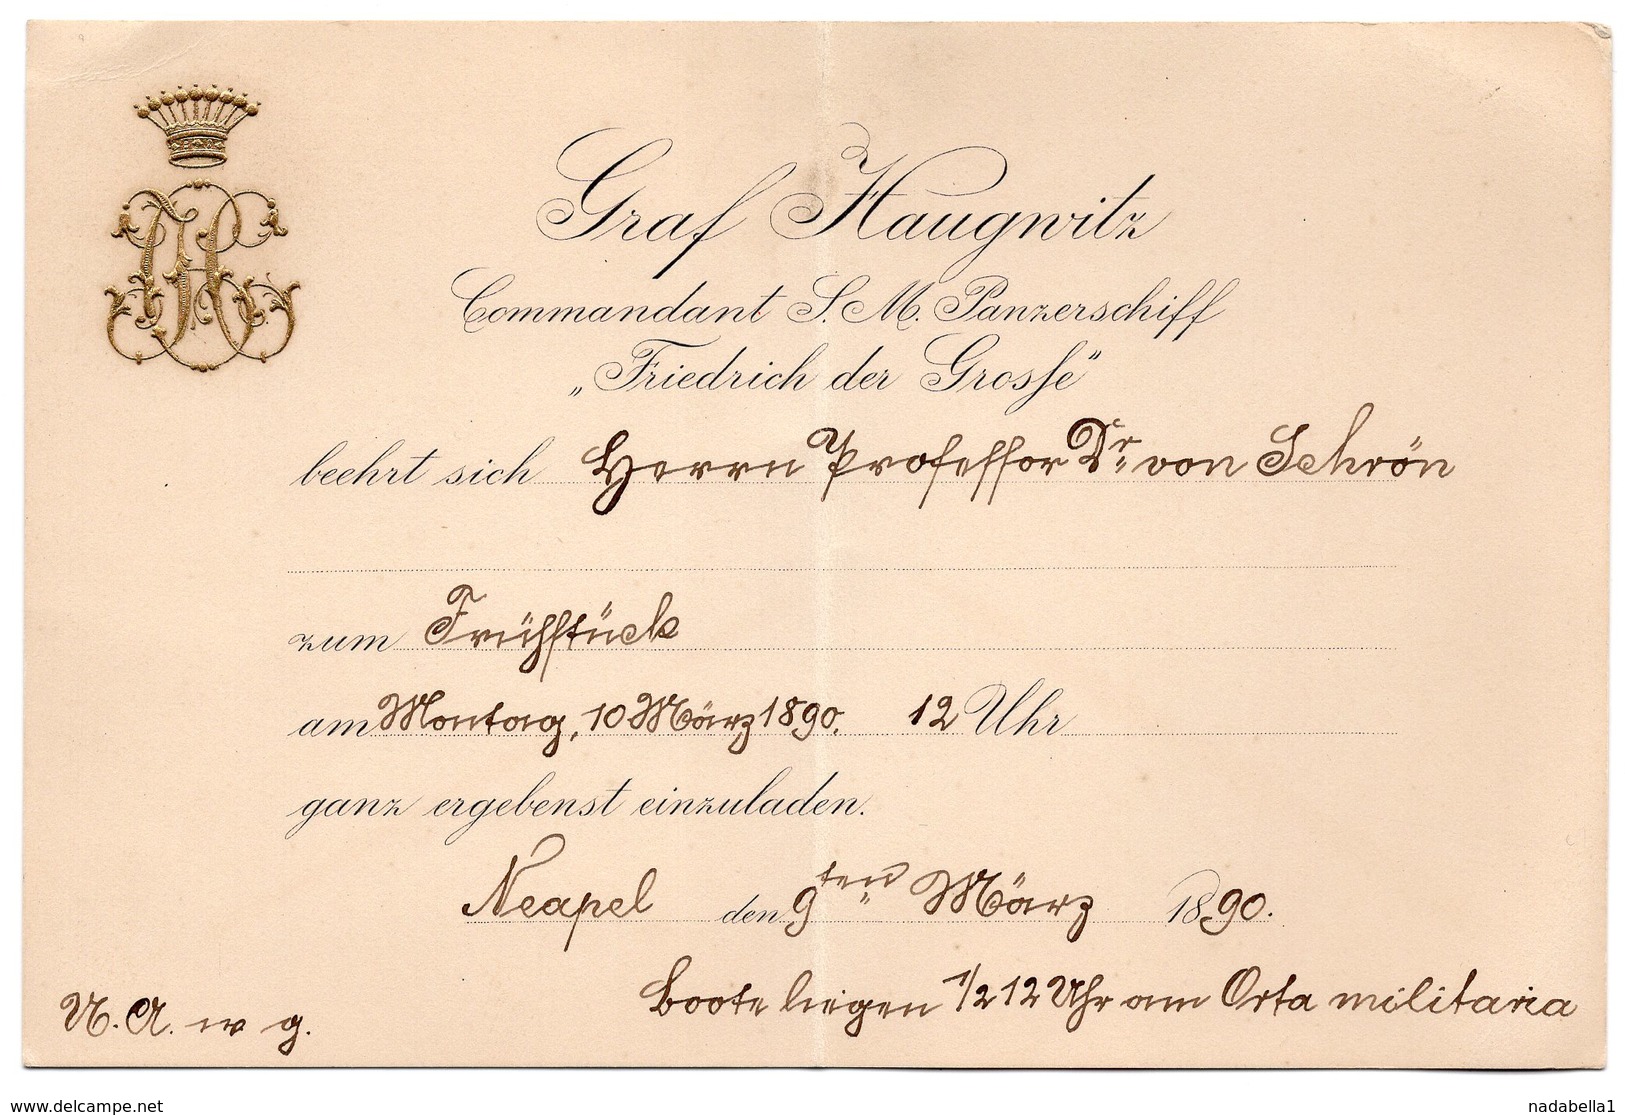 Graf Haugwitz
Commandant S. M. Panzerschiff
„Friedrich der Grosse“
beehrt sich Herrn Professor Dr. von Schrön
zum Frühstück
am Montag, 10 März 1890. 12 Uhr
ganz ergebenst einzuladen.
Neapel den 9ten März 1890.
Boote liegen 1/2 12 Uhr am Orta militaria
U. A. w g.
www.delcampe.net
nadabella1